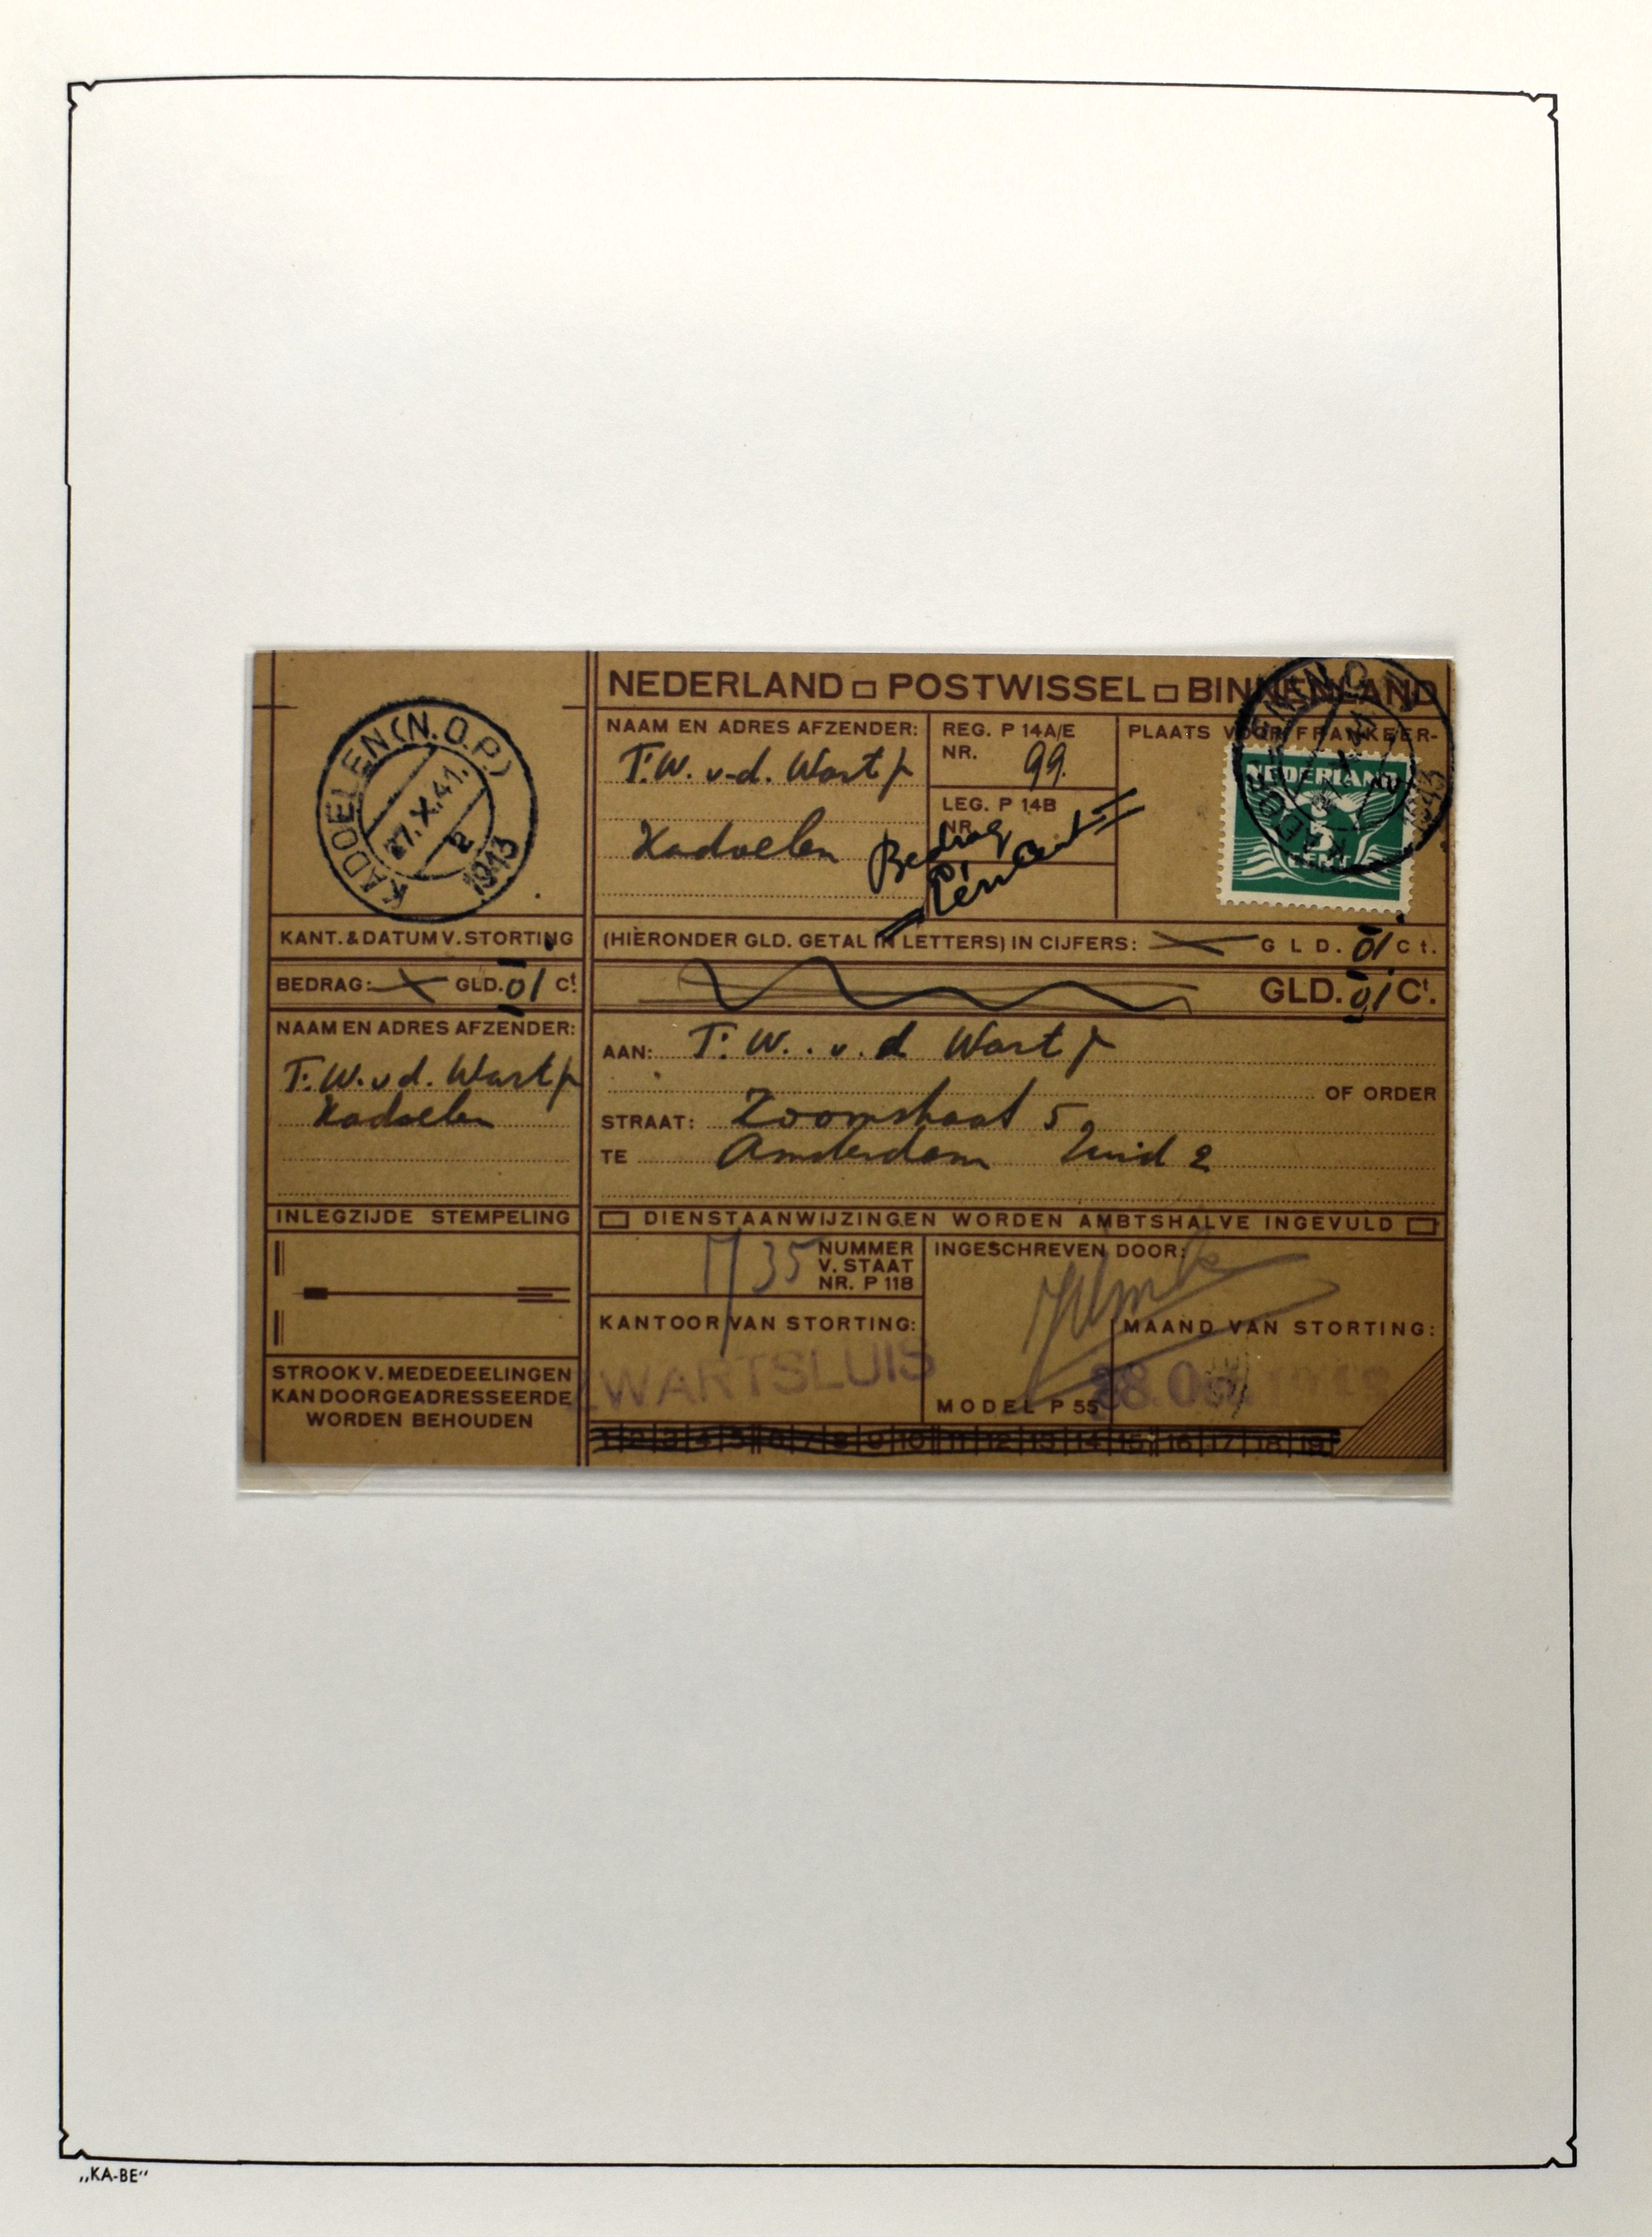 NEDERLAND □ POSTWISSEL □ BINNENLAND
KADOELEN (N.O.P.)
27.X.41.
2
1913
KANT. & DATUM V. STORTING
BEDRAG: GLD. 01 Ct.
NAAM EN ADRES AFZENDER:
T. W. v.d. Wart Jr
Kadoelen
INLEGZIJDE STEMPELING
STROOK V. MEDEDEELINGEN
KAN DOORGEADRESSEERDE
WORDEN BEHOUDEN
NAAM EN ADRES AFZENDER:
T. W. v.d. Wart Jr
Kadoelen
REG. P 14A/E
NR. 99.
LEG. P 14B
NR.
Bedrag
Eén Cent
PLAATS VOOR FRANKEER-
NEDERLAND
3
CENT
1913
(HIERONDER GLD. GETAL IN LETTERS) IN CIJFERS: GLD. 01 Ct.
GLD. 01 Ct.
AAN: T. W. v.d Wart Jr
OF ORDER
STRAAT: Zoomstraat 5
TE Amsterdam Zuid 2
□ DIENSTAANWIJZINGEN WORDEN AMBTSHALVE INGEVULD □
35 NUMMER
V. STAAT
NR. P 118
INGESCHREVEN DOOR:
KANTOOR VAN STORTING:
ZWARTSLUIS
MAAND VAN STORTING:
MODEL P 55
1 2 3 4 5 6 7 8 9 10 11 12 13 14 15 16 17 18 19
„KA-BE“